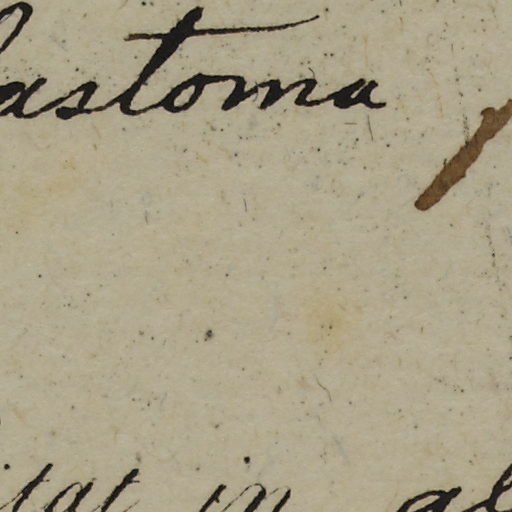 lastoma
itat in al